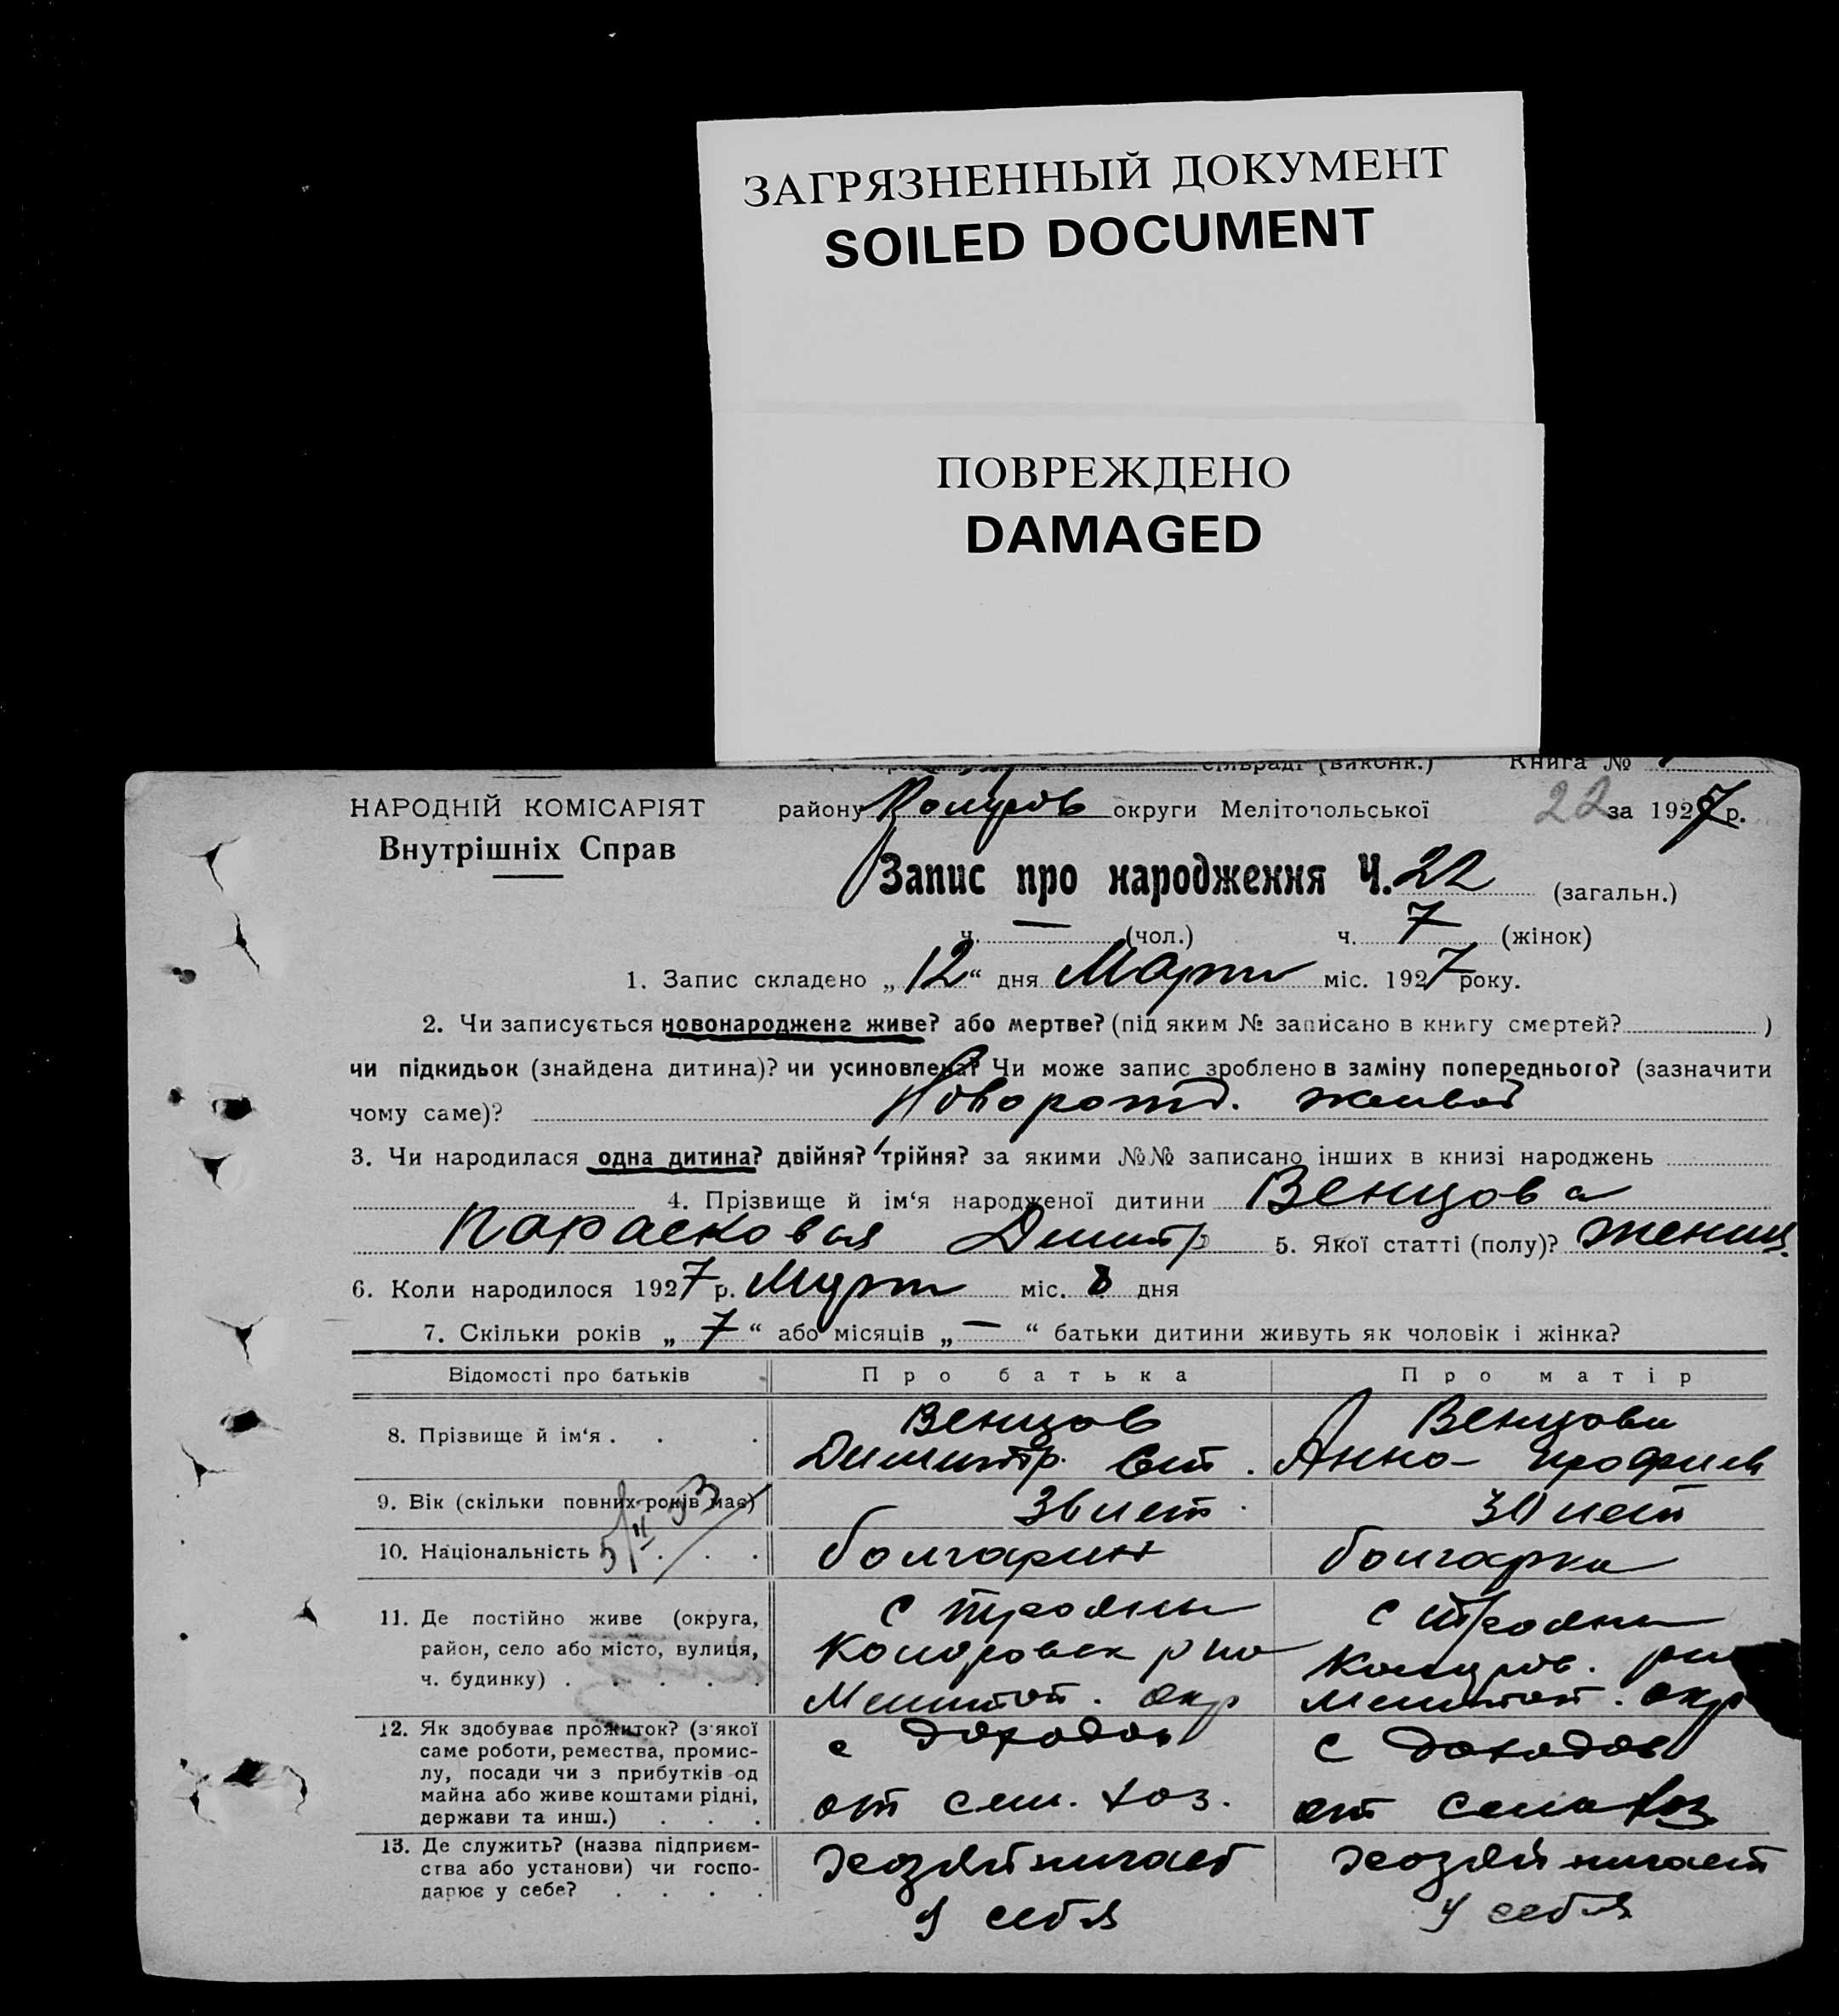 ЗАГРЯЗНЕННЫЙ ДОКУМЕНТ
SOILED DOCUMENT
ПОВРЕЖДЕНО
DAMAGED
сільраді (виконк.) Книга №
НАРОДНІЙ КОМІСАРІЯТ району округи Мелітопольської 22 за 1927 р.
Внутрішніх Справ
Запис про народження Ч. 22 (загальн.)
ч. — (чол.) ч. 7 (жінок)
1. Запис складено „12“ дня Март міс. 1927 року.
2. Чи записується новонароджене живе? або мертве? (під яким № записано в книгу смертей? )
чи підкидьок (знайдена дитина)? чи усиновлена? Чи може запис зроблено в заміну попереднього? (зазначити
чому саме)?Новорожд. живой
3. Чи народилася одна дитина? двійня? трійня? за якими №№ записано інших в книзі народжень
4. Прізвище й ім‘я народженої дитини Венцова
Парасковья Димитр 5. Якої статті (полу)? женщ.
6. Коли народилося 1927 р. Март міс. 8 дня
7. Скільки років „7“ або місяців „—“ батьки дитини живуть як чоловік і жінка?
Відомості про батьків Про батька Про матір
8. Прізвище й ім‘я . . . Венцов Венцова
Димитр. Анна
9. Вік (скільки повних років має) 36 лет 30 лет
10. Національність . . . болгарин болгарка
11. Де постійно живе (округа, с Трояны с Трояны
район, село або місто, вулиця,
ч. будинку) . . . . . Мелитоп. окр Мелитоп. окр
12. Як здобуває прожиток? (з якої с доходов с доходов
саме роботи, ремества, промис-
лу, посади чи з прибутків од
майна або живе коштами рідні, от сел. хоз. от сельхоз
держави та инш.) . . .
13. Де служить? (назва підприєм- хозяйничает хозяйничает
ства або установи) чи госпо-
дарює у себе? . . . . у себя у себя